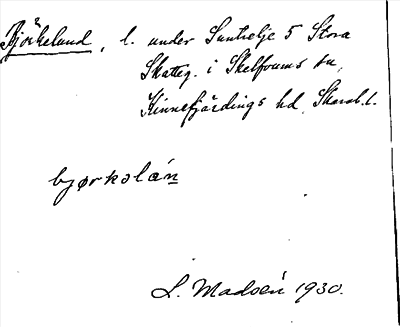 Björkelund, l. under Suntetje 5 Stora
Skatteg. i Skelfvums sn,
Kinnefjärdings hd, Skarab. l.
bjørkolán
L. Madsén 1930.